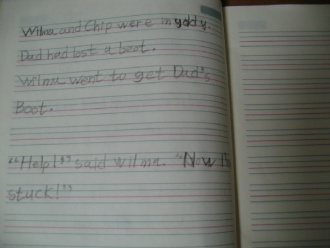 Wilma and Chip were in
Dad had lost a boot.
Wilma went to get Dad's
Boot.
"Help!" said Wilma. "Now
stuck!"